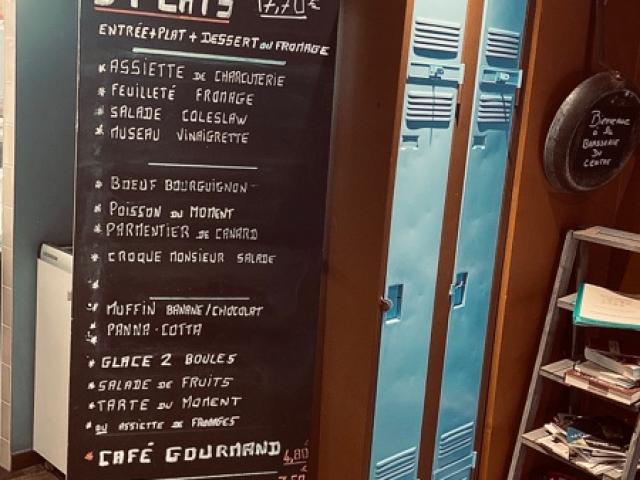 3 PLATS 17,70€
ENTRÉE+PLAT+DESSERT OU FROMAGE
* ASSIETTE DE CHARCUTERIE
* FEUILLETÉ FROMAGE
* SALADE COLESLAW
* MUSEAU VINAIGRETTE
* BOEUF BOURGUIGNON
* POISSON DU MOMENT
* PARMENTIER DE CANARD
* CROQUE MONSIEUR SALADE
* MUFFIN BANANE/CHOCOLAT
* PANNA-COTTA
* GLACE 2 BOULES
* SALADE DE FRUITS
* TARTE DU MOMENT
* OU ASSIETTE DE FROMAGES
* CAFÉ GOURMAND 4,80
Bienvenue
à la
BRASSERIE
DU
CENTRE